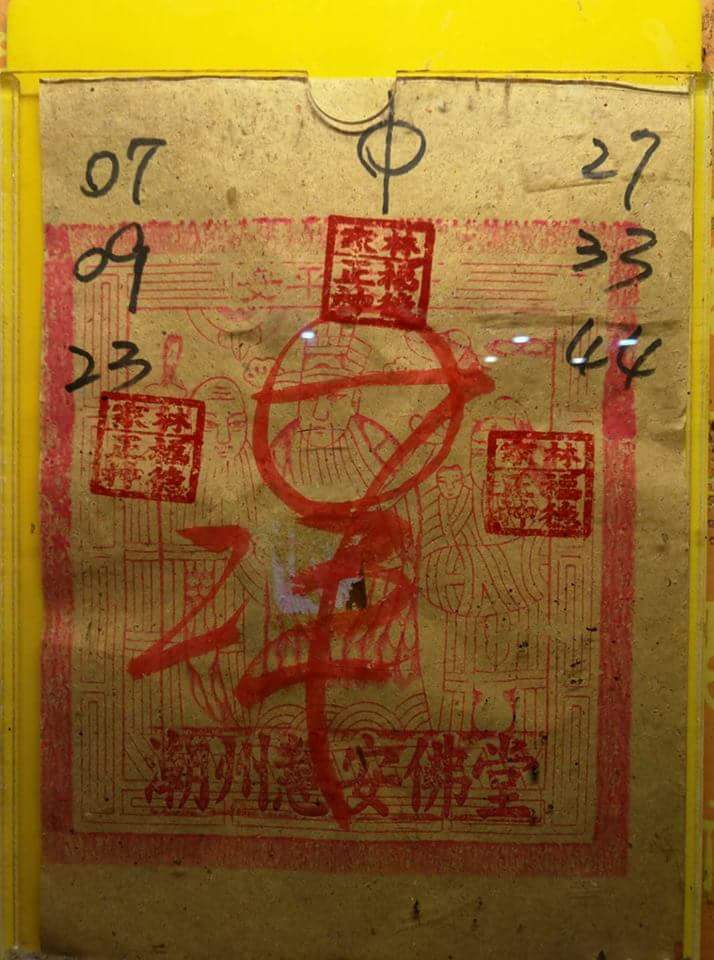 07 27
09 33
23 44
林家
福德
正神
平安
林家
福德
正神
林家
福德
正神
潮州慧安佛堂